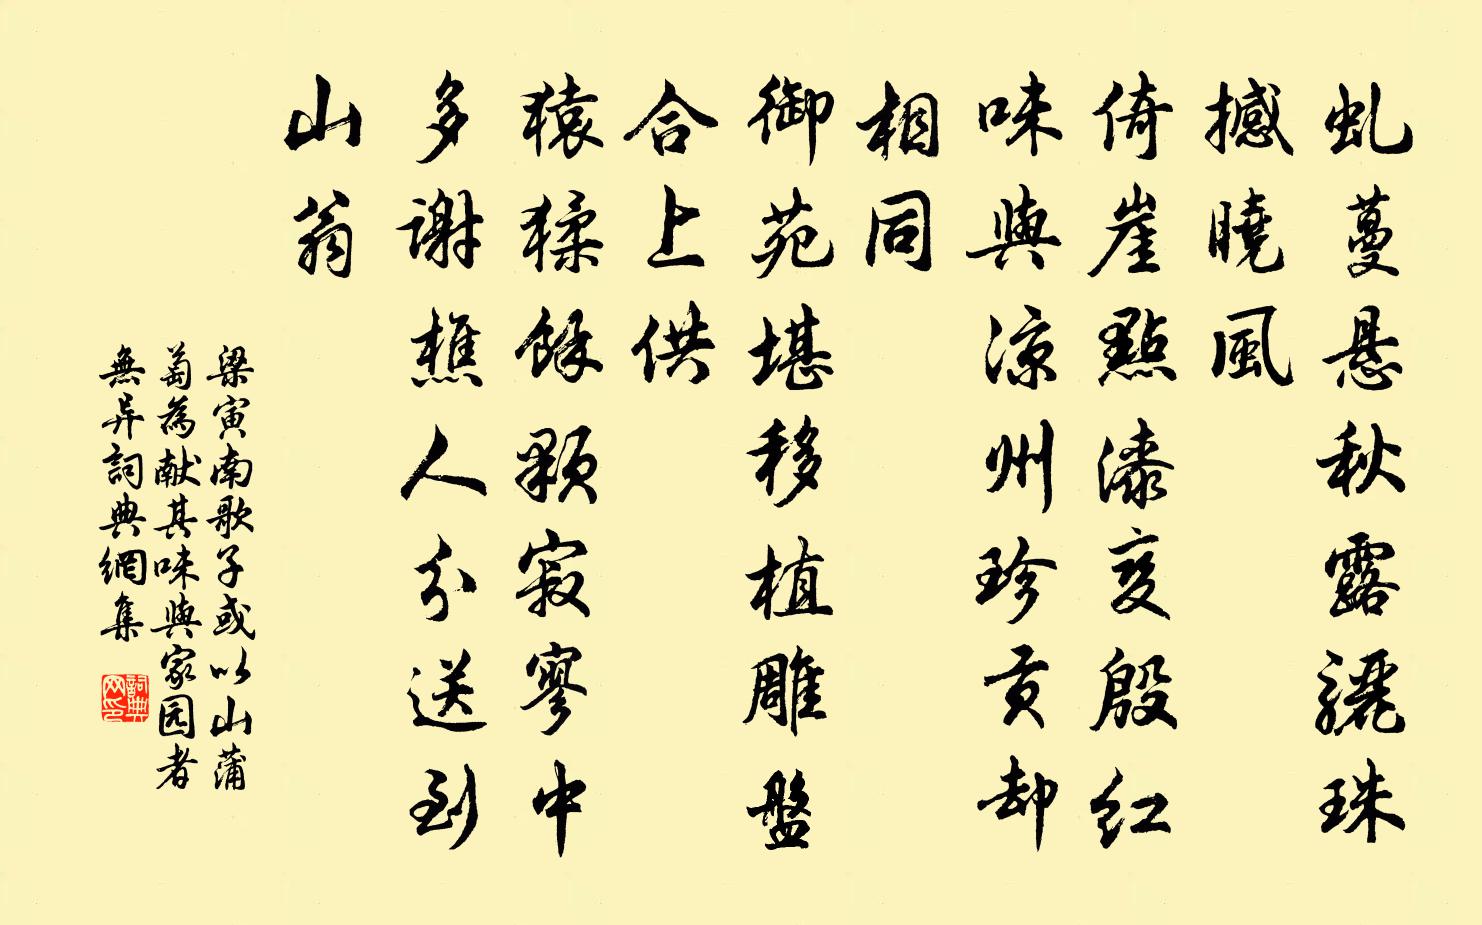 虬蔓悬秋露驪珠
撼曉風
倚崖點漆变殷紅
味與涼州珍贡却
相同
御苑堪移植雕盤
合上供
猿猱餘顆寂寥中
多謝樵人分送到
山翁
梁寅南歌子或以山蒲
萄為献其味與家园者
無异詞典網集
詞典网印